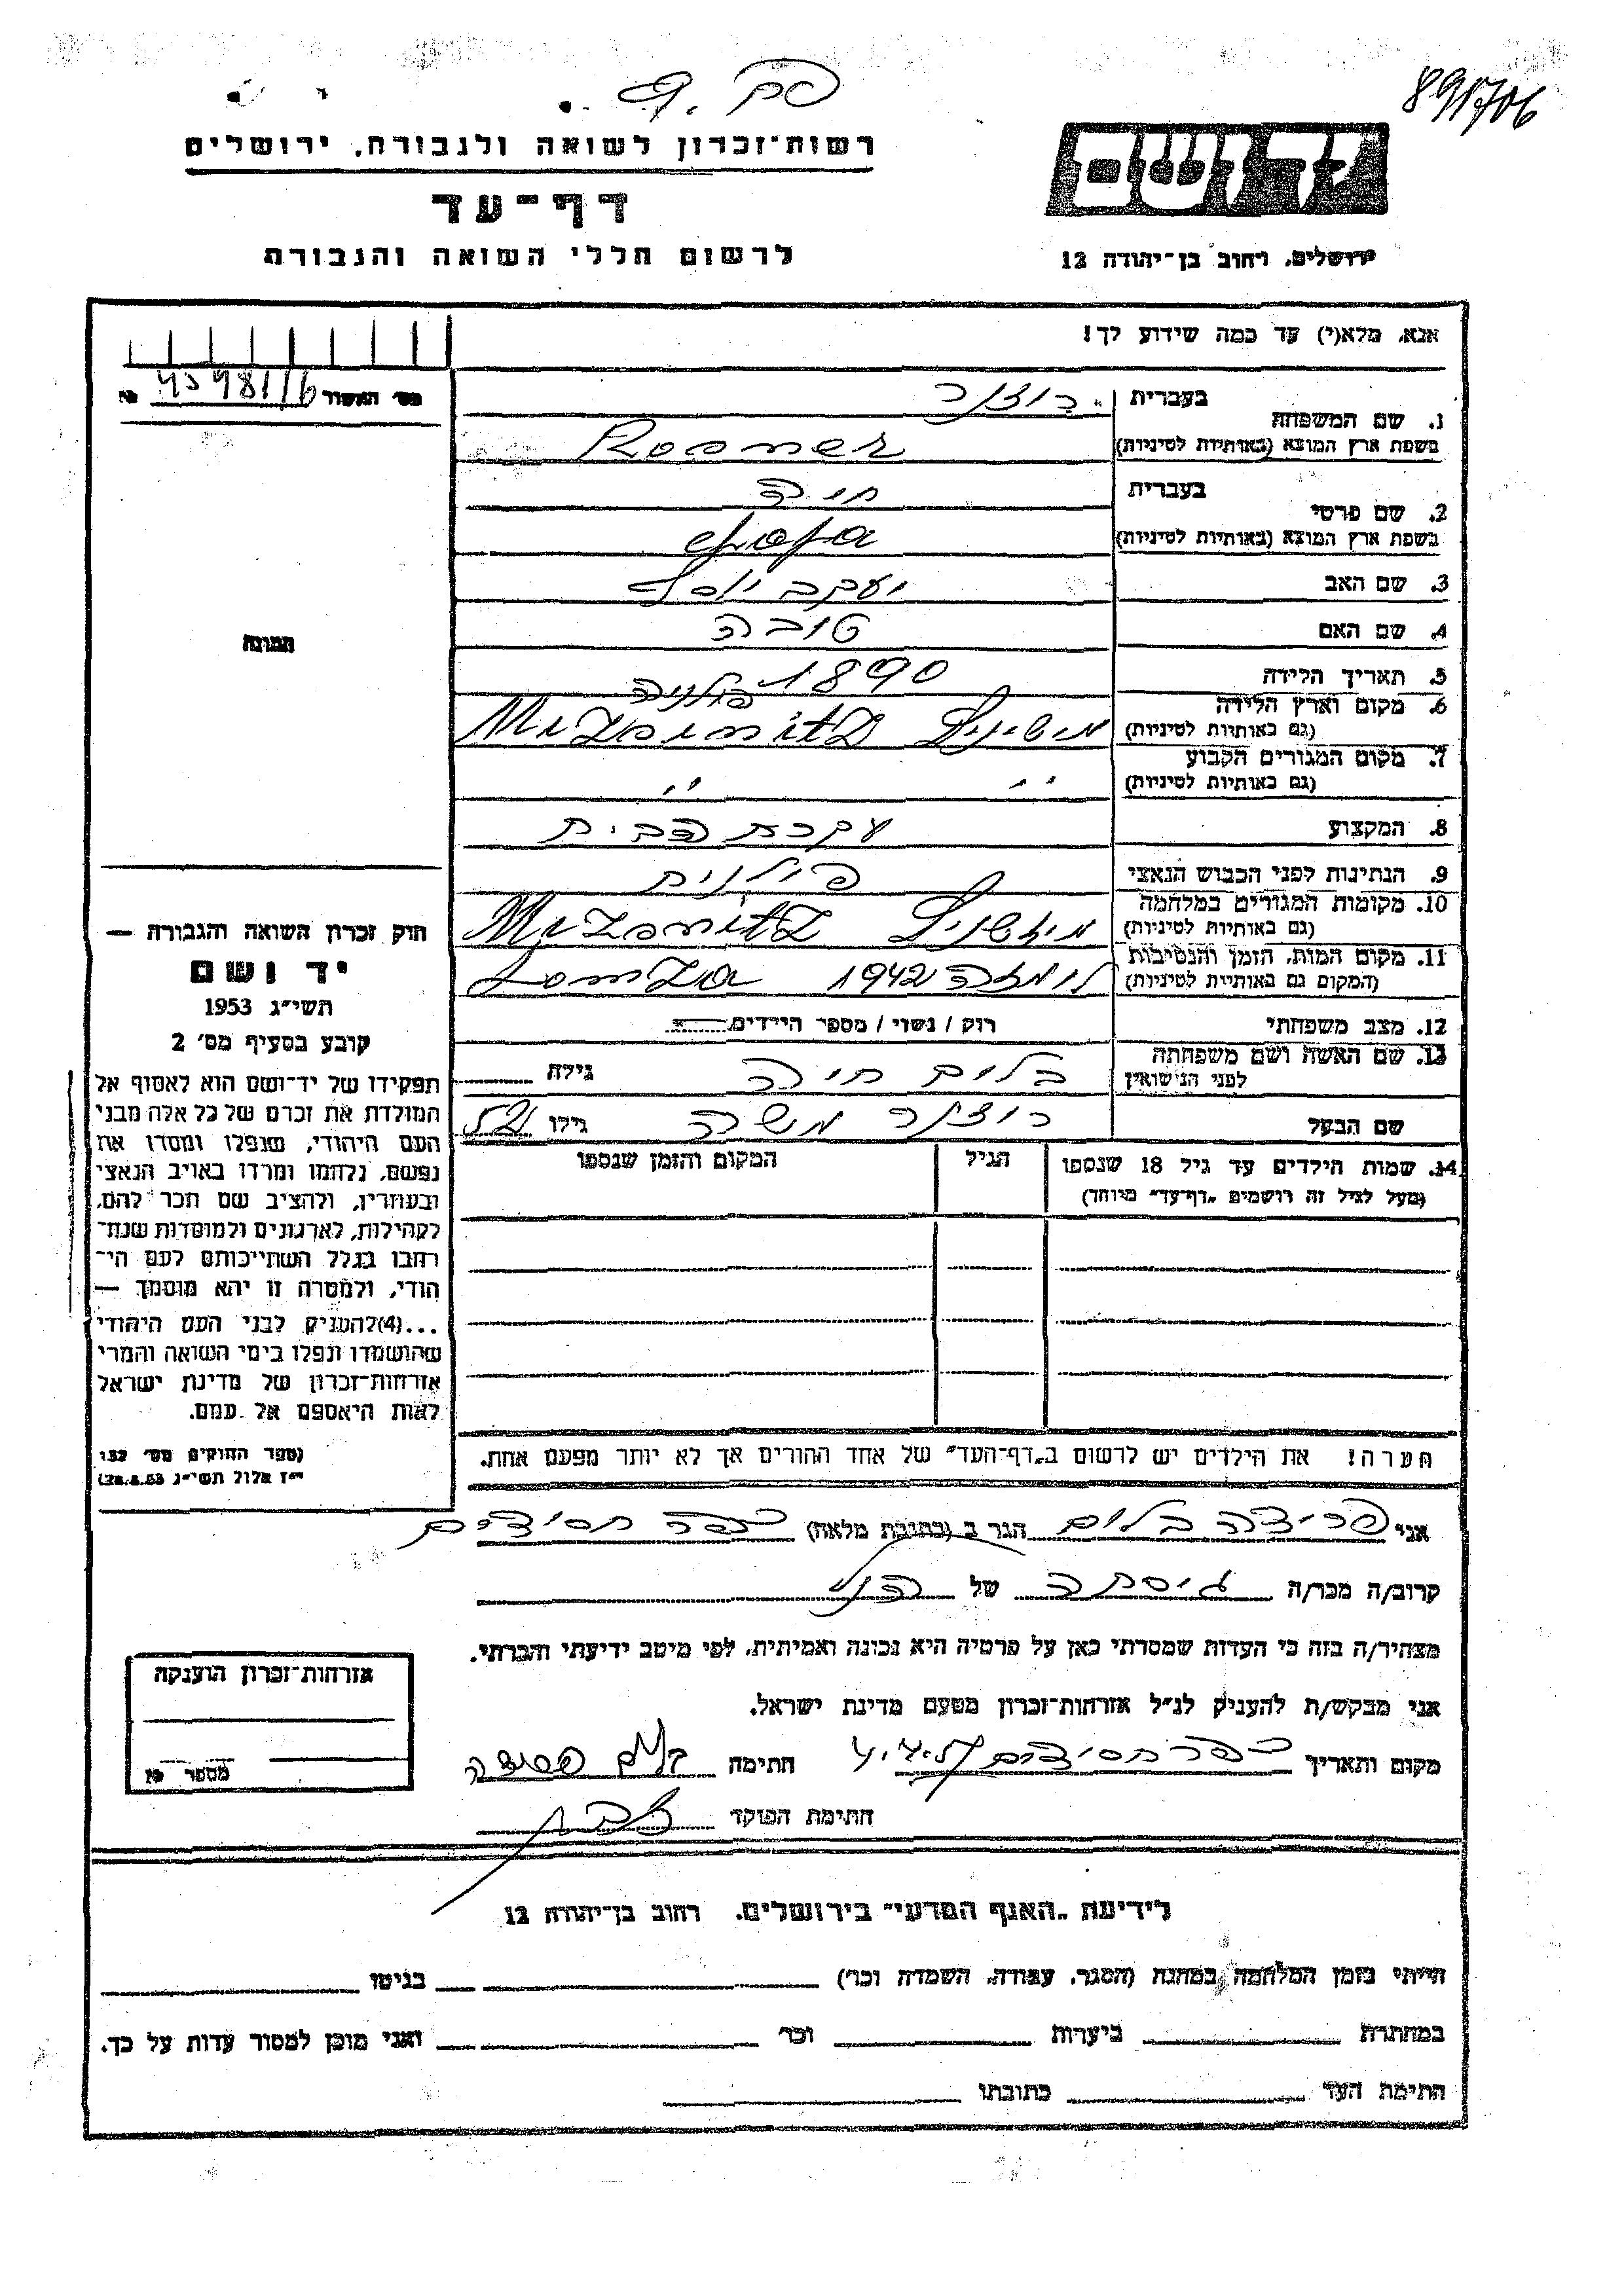 891706
רשות־זכרון לשואה ולגבורה, ירושלים
ידושם
דף־עד
לרשום חללי השואה והגבורה
ירושלים, רחוב בן־יהודה 12
אנא, מלא(י) עד כמה שידוע לך!
מס' האשור
1. שם המשפחה בעברית רוזנר
בשפת ארץ המוצא (באותיות לטיניות) Rosner
2. שם פרטי בעברית חיה
בשפת ארץ המוצא (באותיות לטיניות) chaja
3. שם האב יעקב יוסף
4. שם האם טובה
5. תאריך הלידה 1890
6. מקום וארץ הלידה פולניה
(גם באותיות לטיניות)
7. מקום המגורים הקבוע " "
(גם באותיות לטיניות)
8. המקצוע עקרת הבית
9. הנתינות לפני הכבוש הנאצי פולנית
10. מקומות המגורים במלחמה
(גם באותיות לטיניות)
11. מקום המות, הזמן והנסיבות 1942 Lomza
(המקום גם באותיות לטיניות)
12. מצב משפחתי רוק / נשוי / מספר הילדים
13. שם האשה ושם משפחתה
לפני הנישואין בלום חיה גילה
שם הבעל רוזנר משה גילו 52
14. שמות הילדים עד גיל 18 שנספו הגיל המקום והזמן שנספו
(מעל לגיל זה רושמים „דף־עד" מיוחד)
הערה! את הילדים יש לרשום ב„דף־העד" של אחד ההורים אך לא יותר מפעם אחת.
תמונה
חוק זכרון השואה והגבורה —
יד ושם
תשי"ג 1953
קובע בסעיף מס' 2
תפקידו של יד־ושם הוא לאסוף אל
המולדת את זכרם של כל אלה מבני
העם היהודי, שנפלו ומסרו את
נפשם, נלחמו ומרדו באויב הנאצי
ובעוזריו, ולהציב שם וזכר להם,
לקהילות, לארגונים ולמוסדות שנח־
רבו בגלל השתייכותם לעם הי־
הודי, ולמטרה זו יהא מוסמך —
...(4) להעניק לבני העם היהודי
שהושמדו ונפלו בימי השואה והמרי
אזרחות־זכרון של מדינת ישראל
לאות היאספם אל עמם.
(ספר החוקים מס' 132
י"ז אלול תשי"ג 28.8.53)
אני פרידה בלום הגר ב (כתובת מלאה) כפר חסידים
קרוב/ה מכר/ה גיסתה של הנ"ל
מצהיר/ה בזה כי העדות שמסרתי כאן על פרטיה היא נכונה ואמיתית, לפי מיטב ידיעתי והכרתי.
אני מבקש/ת להעניק לנ"ל אזרחות־זכרון מטעם מדינת ישראל.
מקום ותאריך כפר חסידים חתימה בלום פרידה
חתימת הפוקד
אזרחות־זכרון הוענקה
מספר
לידיעת „האגף המדעי" בירושלים, רחוב בן־יהודה 12
הייתי בזמן המלחמה במחנה (הסגר, עבודה, השמדה וכו') בגיטו
במחתרת ביערות וכו' ואני מוכן למסור עדות על כך.
חתימת העד כתובתו